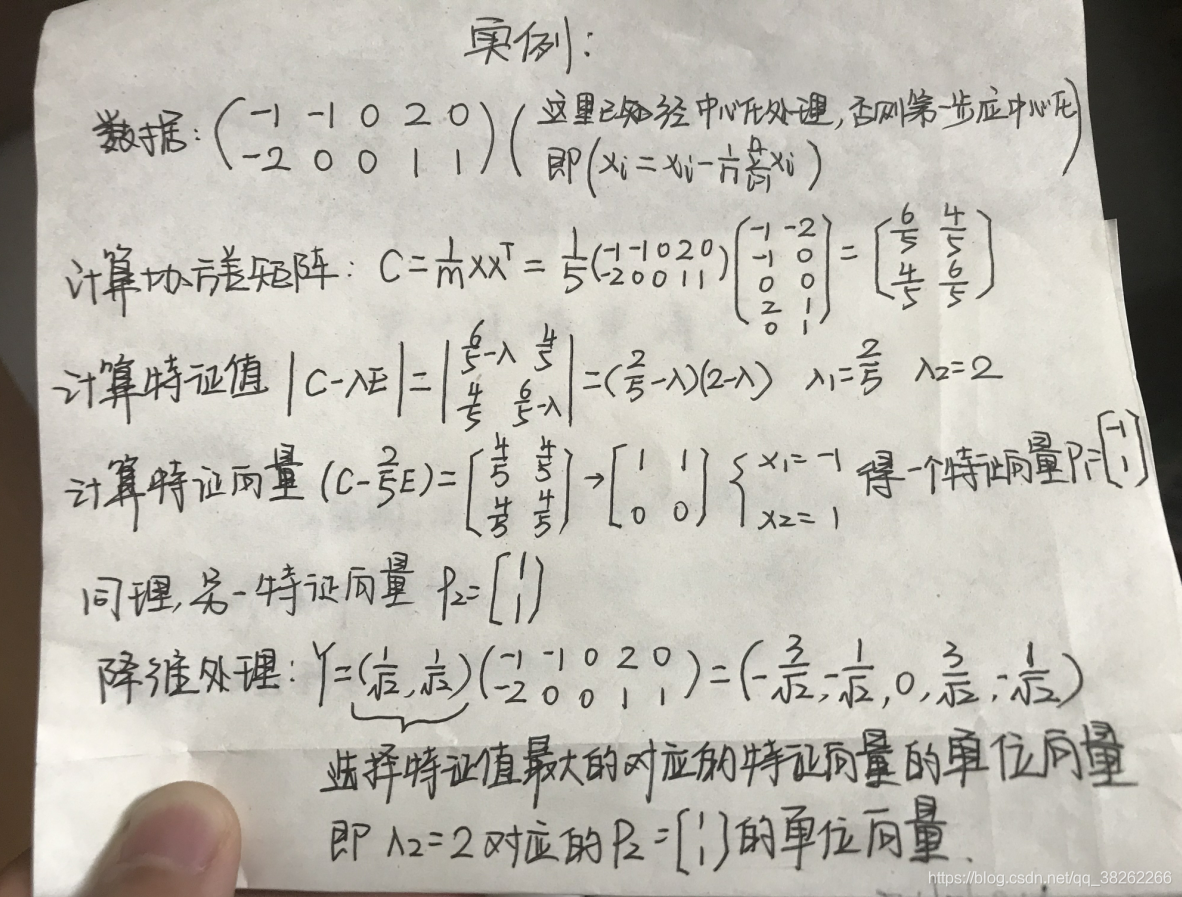 实例:
数据: (-1 -1 0 2 0; -2 0 0 1 1) (这里已知经中心化处理,否则第一步应中心化
即(xi = xi - 1/n Σ xi))
计算协方差矩阵: C = 1/m XX^T = 1/5 (-1 -1 0 2 0; -2 0 0 1 1) [-1 -2; -1 0; 0 0; 2 1; 0 1] = [6/5 4/5; 4/5 6/5]
计算特征值 |C-λE| = |6/5-λ 4/5; 4/5 6/5-λ| = (2/5-λ)(2-λ) λ1=2/5 λ2=2
计算特征向量 (C-2/5E) = [4/5 4/5; 4/5 4/5] → [1 1; 0 0] { x1=-1 x2=1 得一个特征向量P1=[-1; 1]
同理,另一特征向量 P2=[1; 1]
降维处理: Y=(1/√2, 1/√2)(-1 -1 0 2 0; -2 0 0 1 1) = (-3/√2, -1/√2, 0, 3/√2, -1/√2)
选择特征值最大的对应的特征向量的单位向量
即 λ2=2 对应的 P2=[1; 1] 的单位向量.
https://blog.csdn.net/qq_38262266